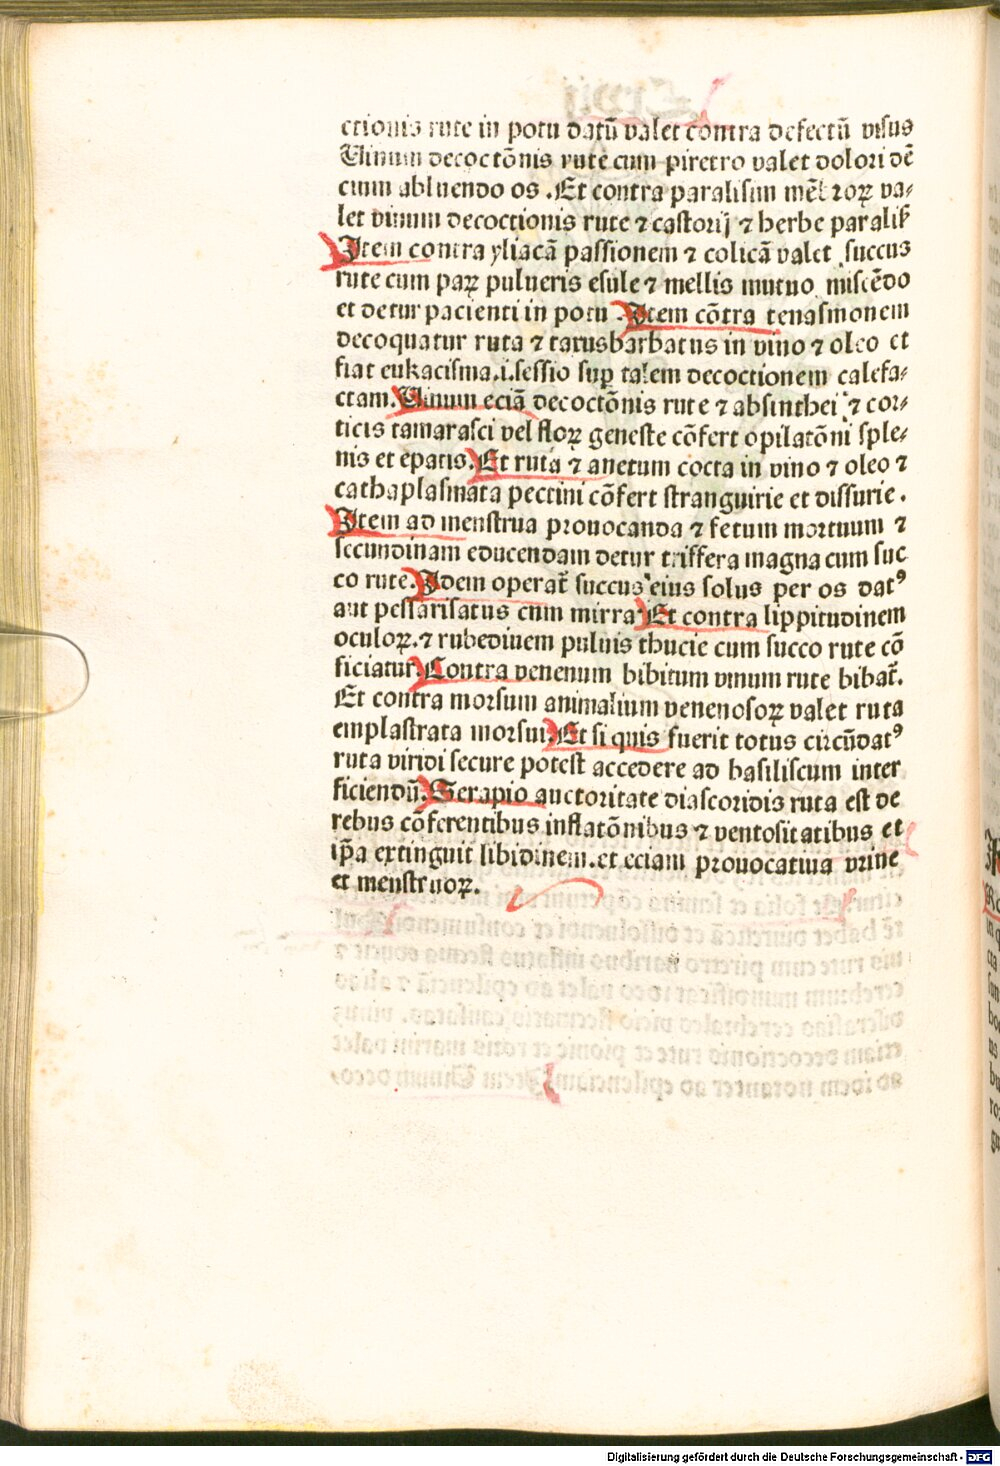 ctionis rute in potu datū valet contra defectū visus
Vinum decoctōnis rute cum piretro valet dolori dē
cium abluendo os .Et contra paralisim mēbroꝝ va⸗
let vinum decoctionis rute ⁊ castorij ⁊ herbe paralis̄
Item contra yliacā passionem ⁊ colicā valet succus
rute cum paꝝ pulueris esule ⁊ mellis mutuo miscēdo
et detur pacienti in potu .Item cōtra tenasmonem
decoquatur ruta ⁊ tarusbarbatus in vino ⁊ oleo et
fiat eukacisma.i.sessio suꝑ talem decoctionem calefa⸗
ctam.Vinum eciā decoctōnis rute ⁊ absinthei ⁊ cor⸗
ticis tamarasci vel floꝝ geneste cōfert opilatōni sple⸗
nis et epatis.Et ruta ⁊ anetum cocta in vino ⁊ oleo ⁊
cathaplasmata pectini cōfert stranguirie et dissurie.
Item ad menstrua prouocanda ⁊ fetum mortuum ⁊
secundinam educendam detur triffera magna cum suc
co rute.Idem operat̄ succus eius solus per os datꝰ
aut pessarisatus cum mirra.Et contra lippitudinem
oculoꝝ.⁊ rubedinem puluis thucie cum succo rute cō
ficiatur.Contra venenum bibitum vinum rute bibat̄.
Et contra morsum animalium venenosoꝝ valet ruta
emplastrata morsui.Et si quis fuerit totus circūdatꝰ
ruta viridi secure potest accedere ad basiliscum inter
ficiendū.Serapio auctoritate diascoridis ruta est de
rebus cōferentibus inflatōnibus ⁊ ventositatibus et
ip̄a extinguit libidinem.et eciam prouocatiua vrine
et menstruoꝝ.
Digitalisierung gefördert durch die Deutsche Forschungsgemeinschaft - DFG